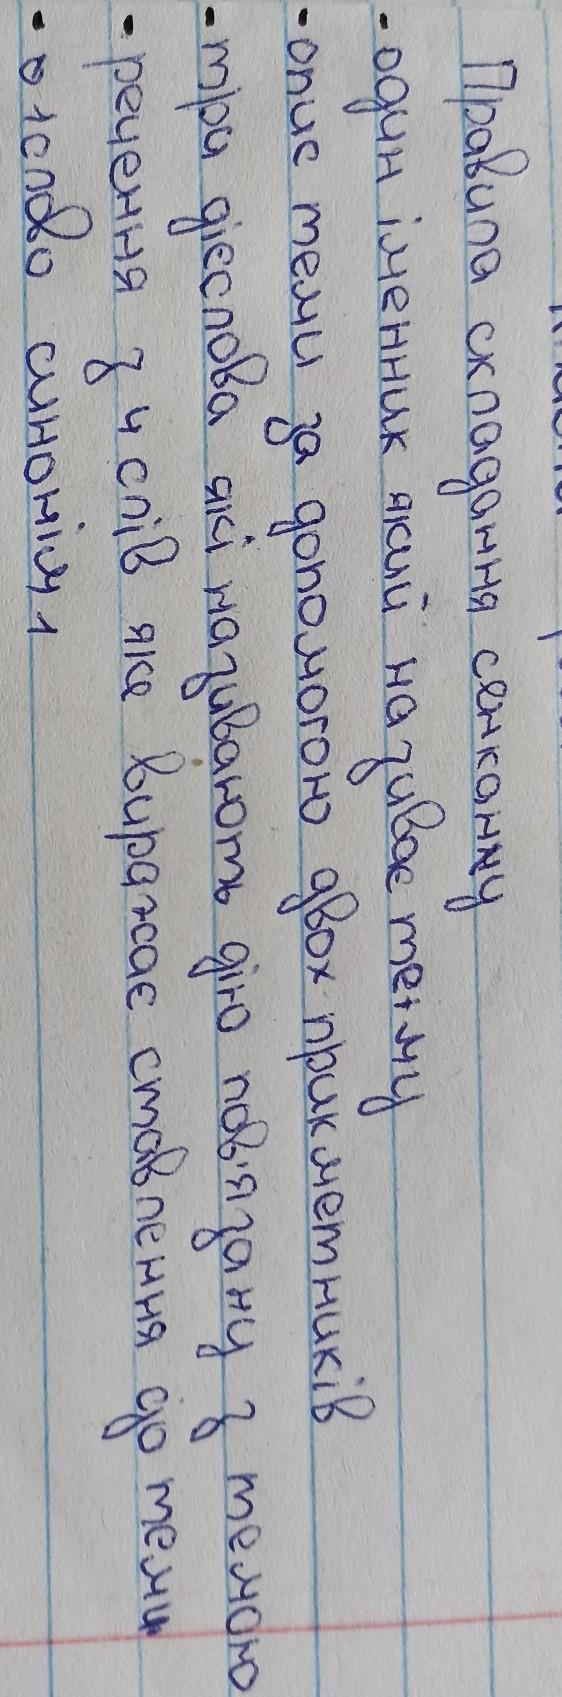 Правила складання сенкану
- один іменник який називає тему
- опис теми за допомогою двох прикметників
- три дієслова які називають дію пов'язану з темою
- речення з 4 слів яке виражає ставлення до теми
- 1 слово синонім 1